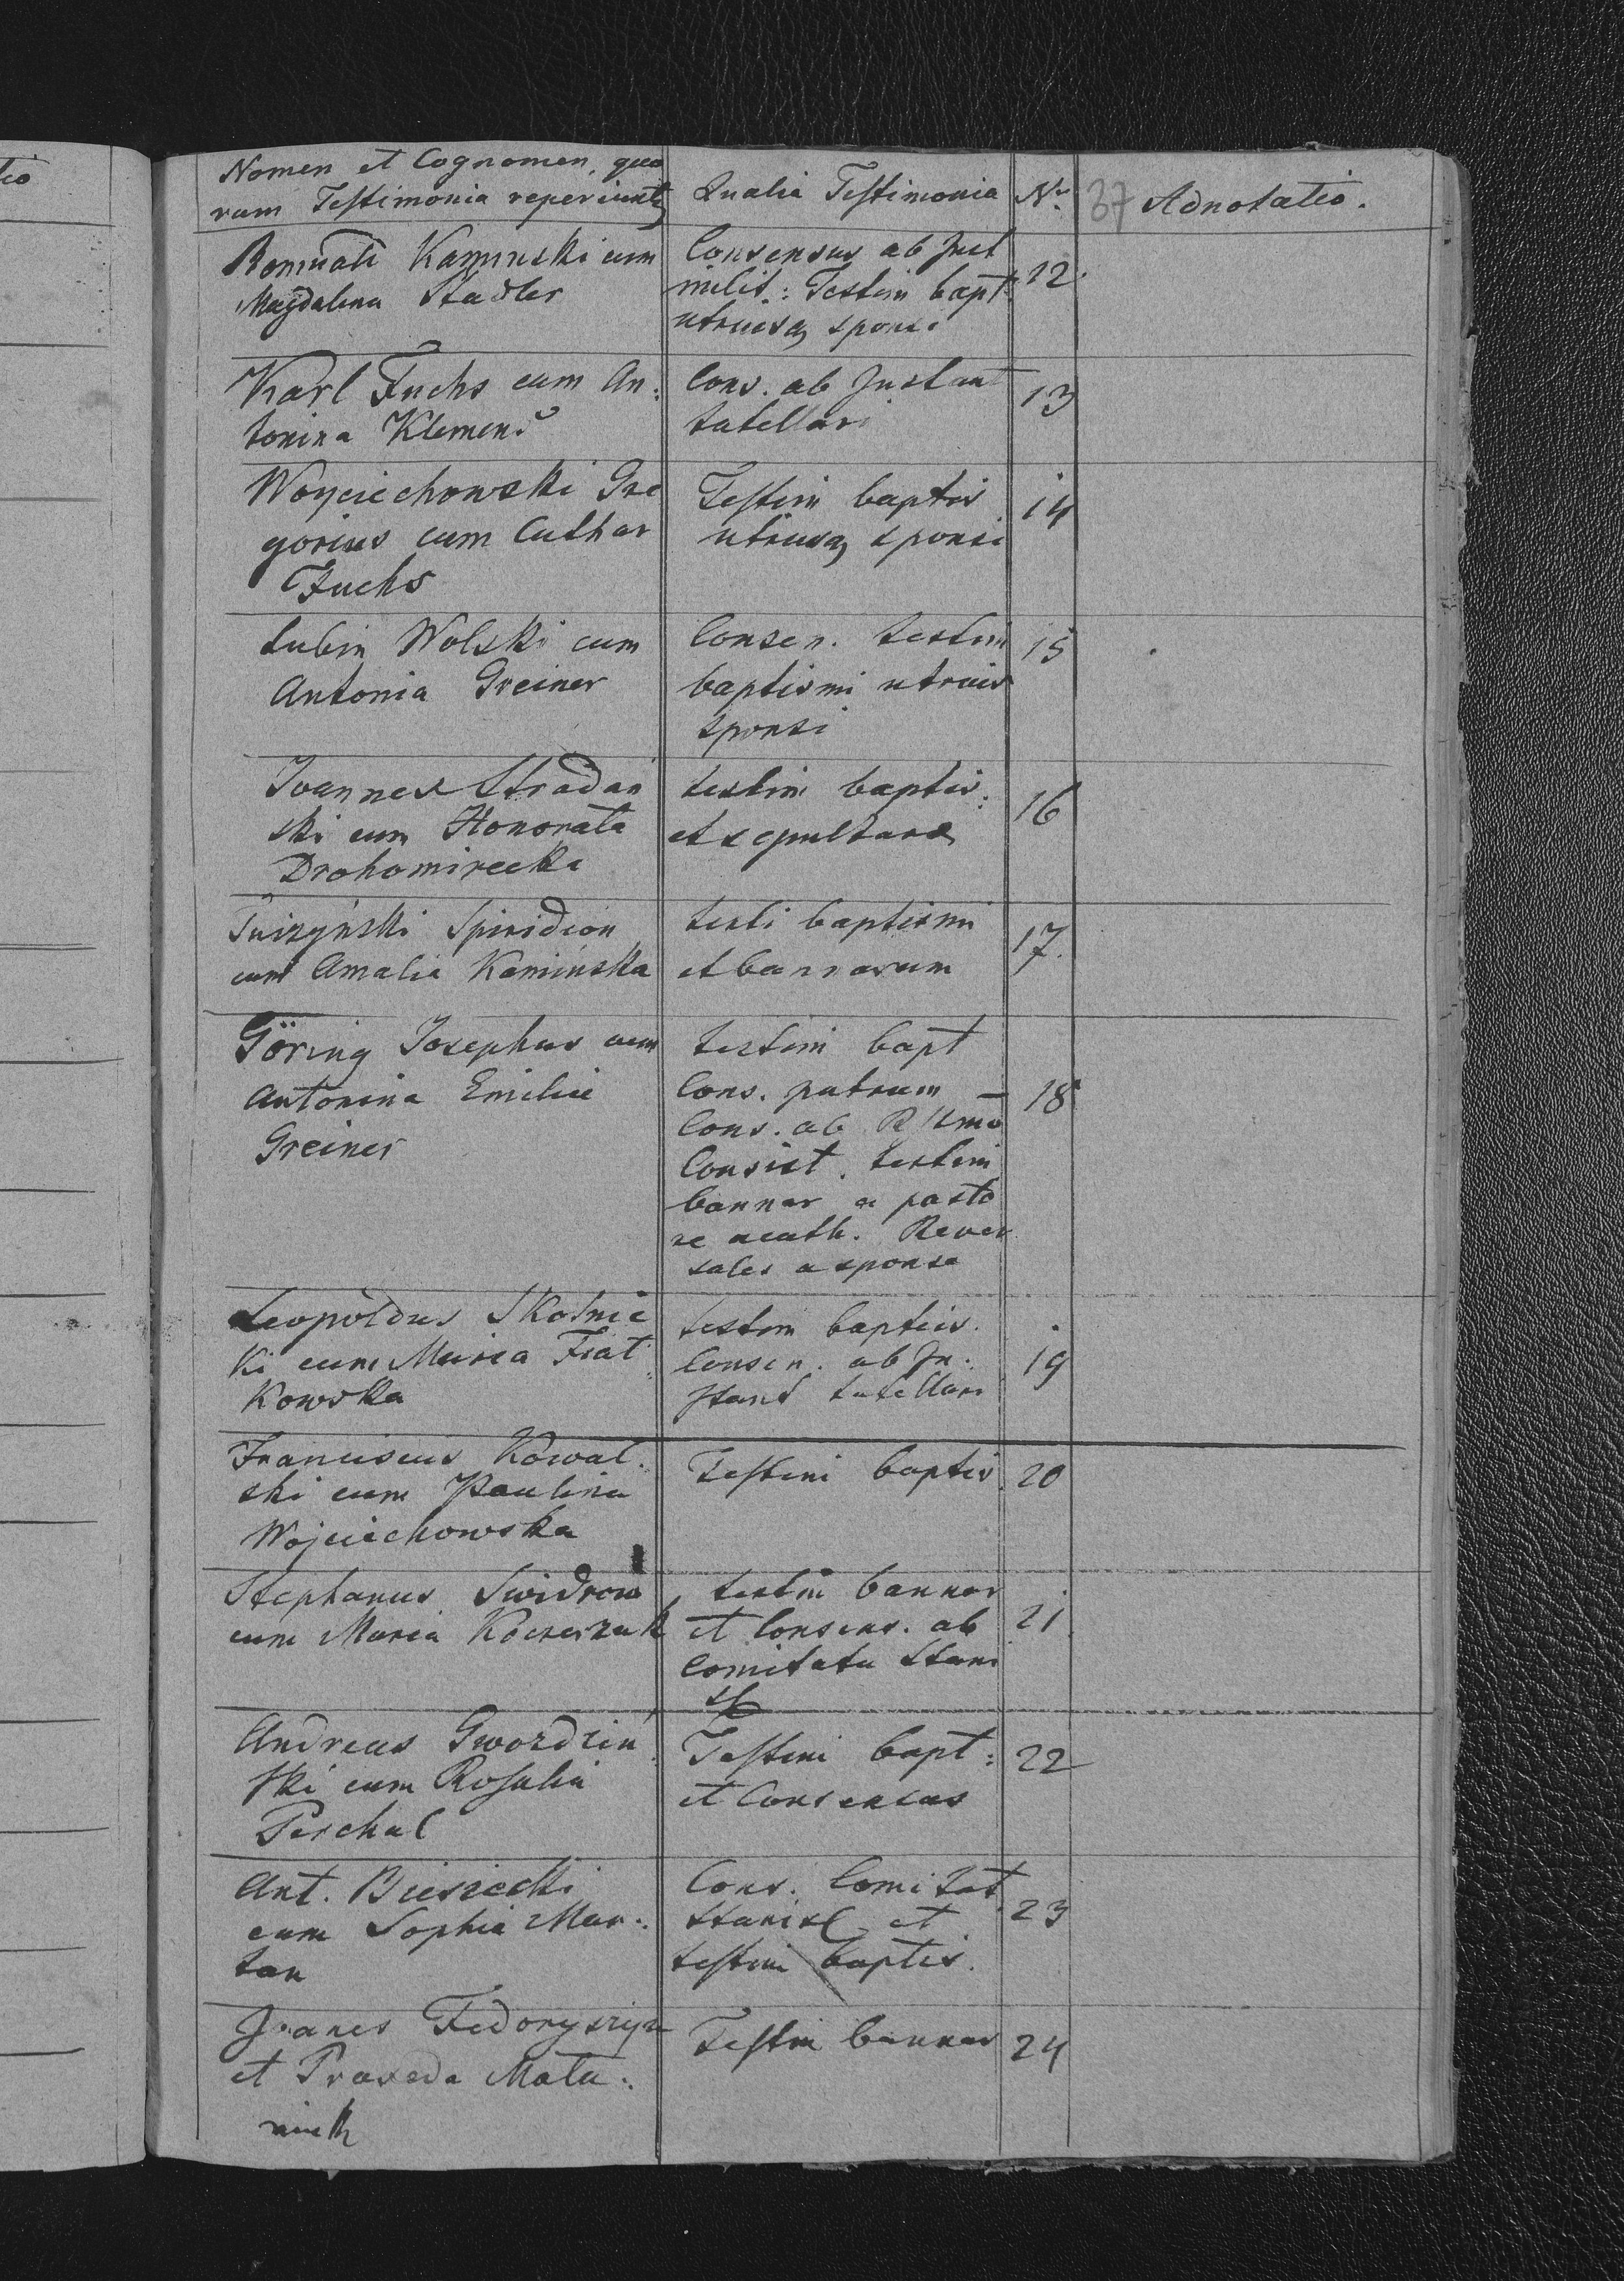 tio
Nomen et Cognomen, quo
rum Testimonia reperiuntq
Qualia Testimonia
Nr.
37
Adnotatio.
Romuali Kaminski cum
Magdalena Stadler
Consensus ab Just
milit: Testim bapt
utriusq sponsi
12.
Karl Fuchs cum An:
tonina Klemens
Cons. ab Justant
tutellari
13
Woyciechowski Gre
gorius cum Cathar
Fuchs
Testim baptis
utriusq sponsi
14
Lubin Wolski cum
Antonia Greiner
Consen. testim
baptismi utrius
sponsi
15
Joannes Stradań
ski cum Honorata
Drohomirecka
testim baptis:
et sepulturae
16
Spiridion
cum Amalia Kaminska
testi baptismi
et bannorum
17.
Göring Josephus cum
Antonina Emilie
Greiner
testim bapt
Cons. patrum
Cons. ab R
Consist. testim
bannor a pasto
re acath. Rever
sales a sponsa
18
Leopoldus Skolnic
ki cum Maria Fiat:
kowska
testim baptis.
Consen. ab In:
stant tutellari
19
Franciscus Kowal:
ski cum Paulina
Wojciechowska
Testim baptis
20
Stephanus Swidrow
cum Maria
testim bannor
et Consens. ab
Comitatu Stani
sl
21
Andreas Gwozdzin
ski cum Rosalia
Perchal
Testim bapt:
et Consensus
22
Ant. Biesiecki
cum Sophia Mar:
tan
Cons. Comitat
Stanisl et
testim baptis.
23
Joanes Fedoryszyn
et Praxeda Mata:
Testim bannor
24